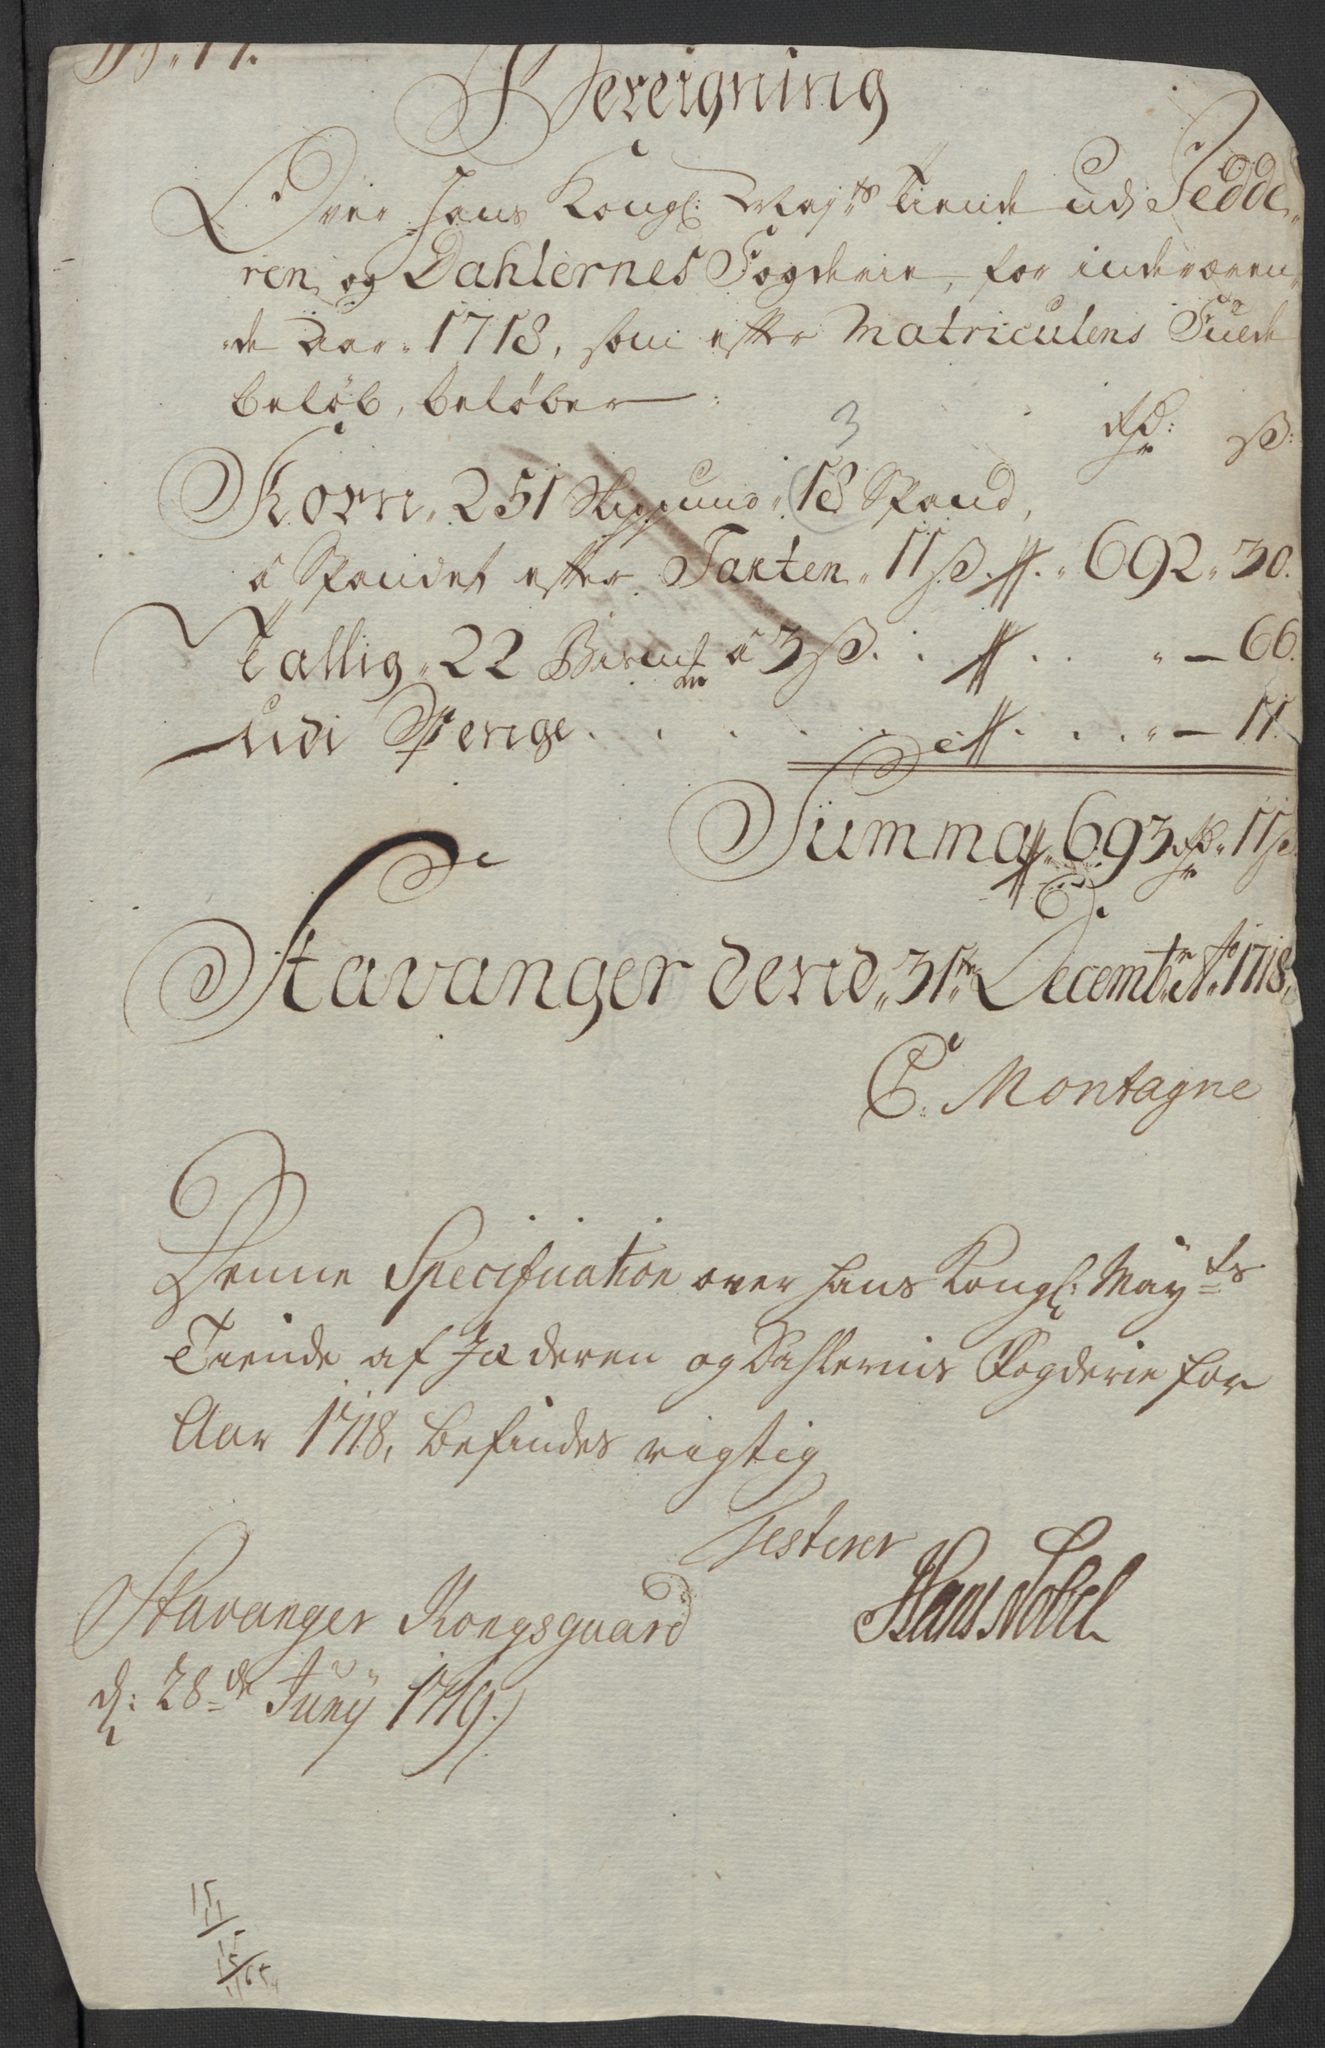 No. 11.
Bereigning
Over Hans Kongl: Maj.ts Tiende udj Jedde„
ren, og Dahlernes Fogderie, for inderæren„
„de Aar 1718, som efter Matriculens Fulde
beløb, beløber
3
Rd: ß:
Korn 251 Skippund 18 Spand,
á Spandet efter Taxten 11 ß. # 692 „ 30.
Tallig 22 Bismr á 3 ß. . # . . . „ — 66.
udi Penge . . . . . . # . . . „ — 11.
Summa # 693 Rd „ 11 ß
Stavanger dend 31te Decembr Ao 1718.
C. Montagne
Denne Specification over Hans Kongl: Mayts
Tiende af Jæderen og Dahlernis Fogderie for
Aar 1718, befindes rigtig
Testerer
Hans Nobel
Stavanger Kongsgaard
d: 28de Junij 1719.
15
11
15
15
1165